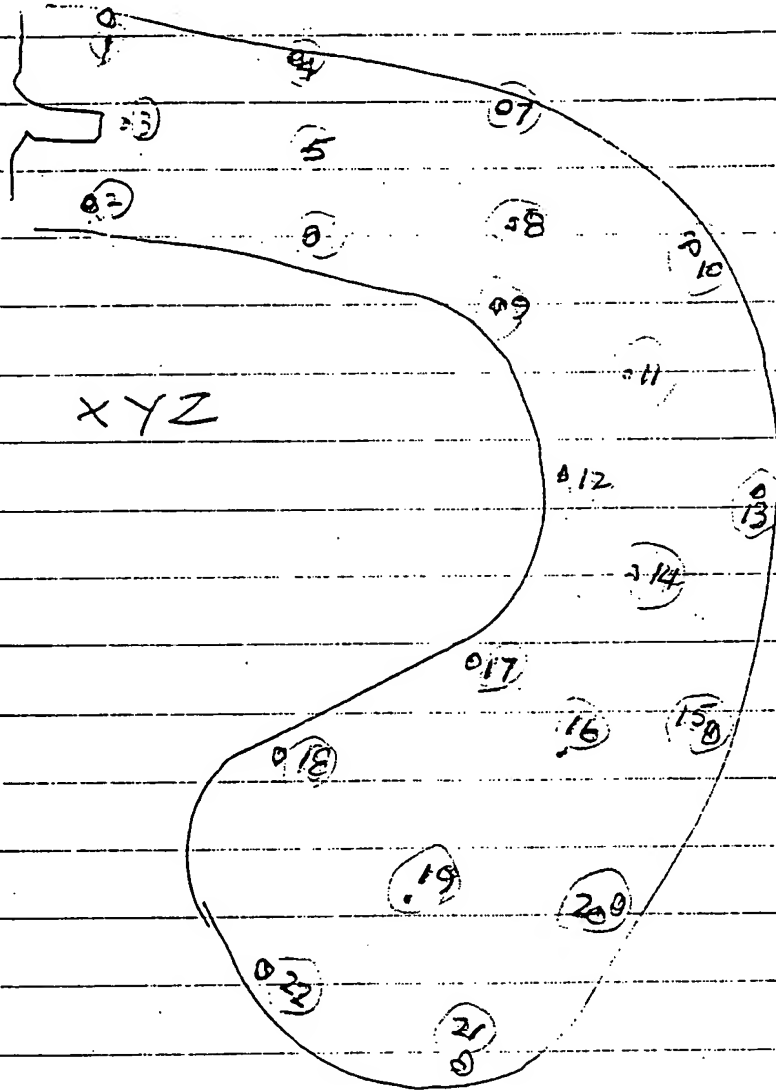 1
4
07
3
5
2
8
10
9
11
XYZ
12
13
14
17
16
15
18
19
20
22
21